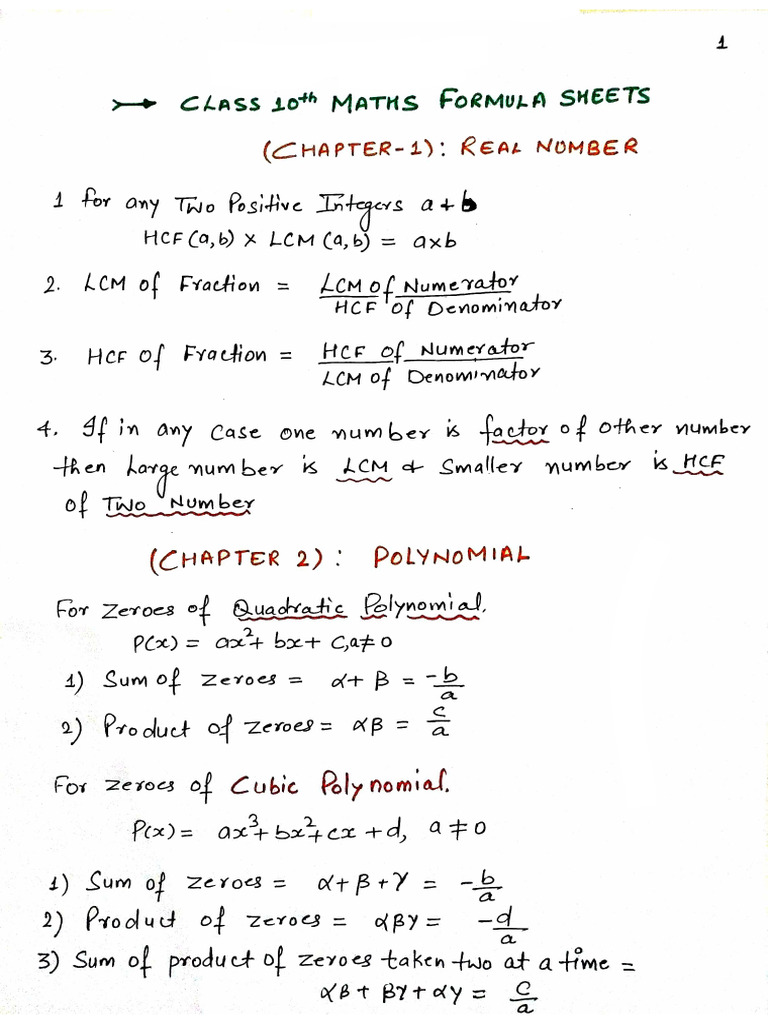 1
→ CLASS 10th MATHS FORMULA SHEETS
(CHAPTER-1): REAL NUMBER
1 for any Two Positive Integers a & b
HCF(a,b) × LCM(a,b) = a×b
2. LCM of Fraction = LCM of Numerator / HCF of Denominator
3. HCF of Fraction = HCF of Numerator / LCM of Denominator
4. If in any case one number is factor of other number
then Large number is LCM & Smaller number is HCF
of Two Number
(CHAPTER 2): POLYNOMIAL
For zeroes of Quadratic Polynomial.
P(x) = ax²+ bx+ c, a≠0
1) Sum of zeroes = α+ β = -b/a
2) Product of zeroes = αβ = c/a
For zeroes of Cubic Polynomial.
P(x) = ax³+bx²+cx +d, a ≠ 0
1) Sum of zeroes = α+ β + γ = -b/a
2) Product of zeroes = αβγ = -d/a
3) Sum of product of zeroes taken two at a time =
αβ + βγ + αγ = c/a